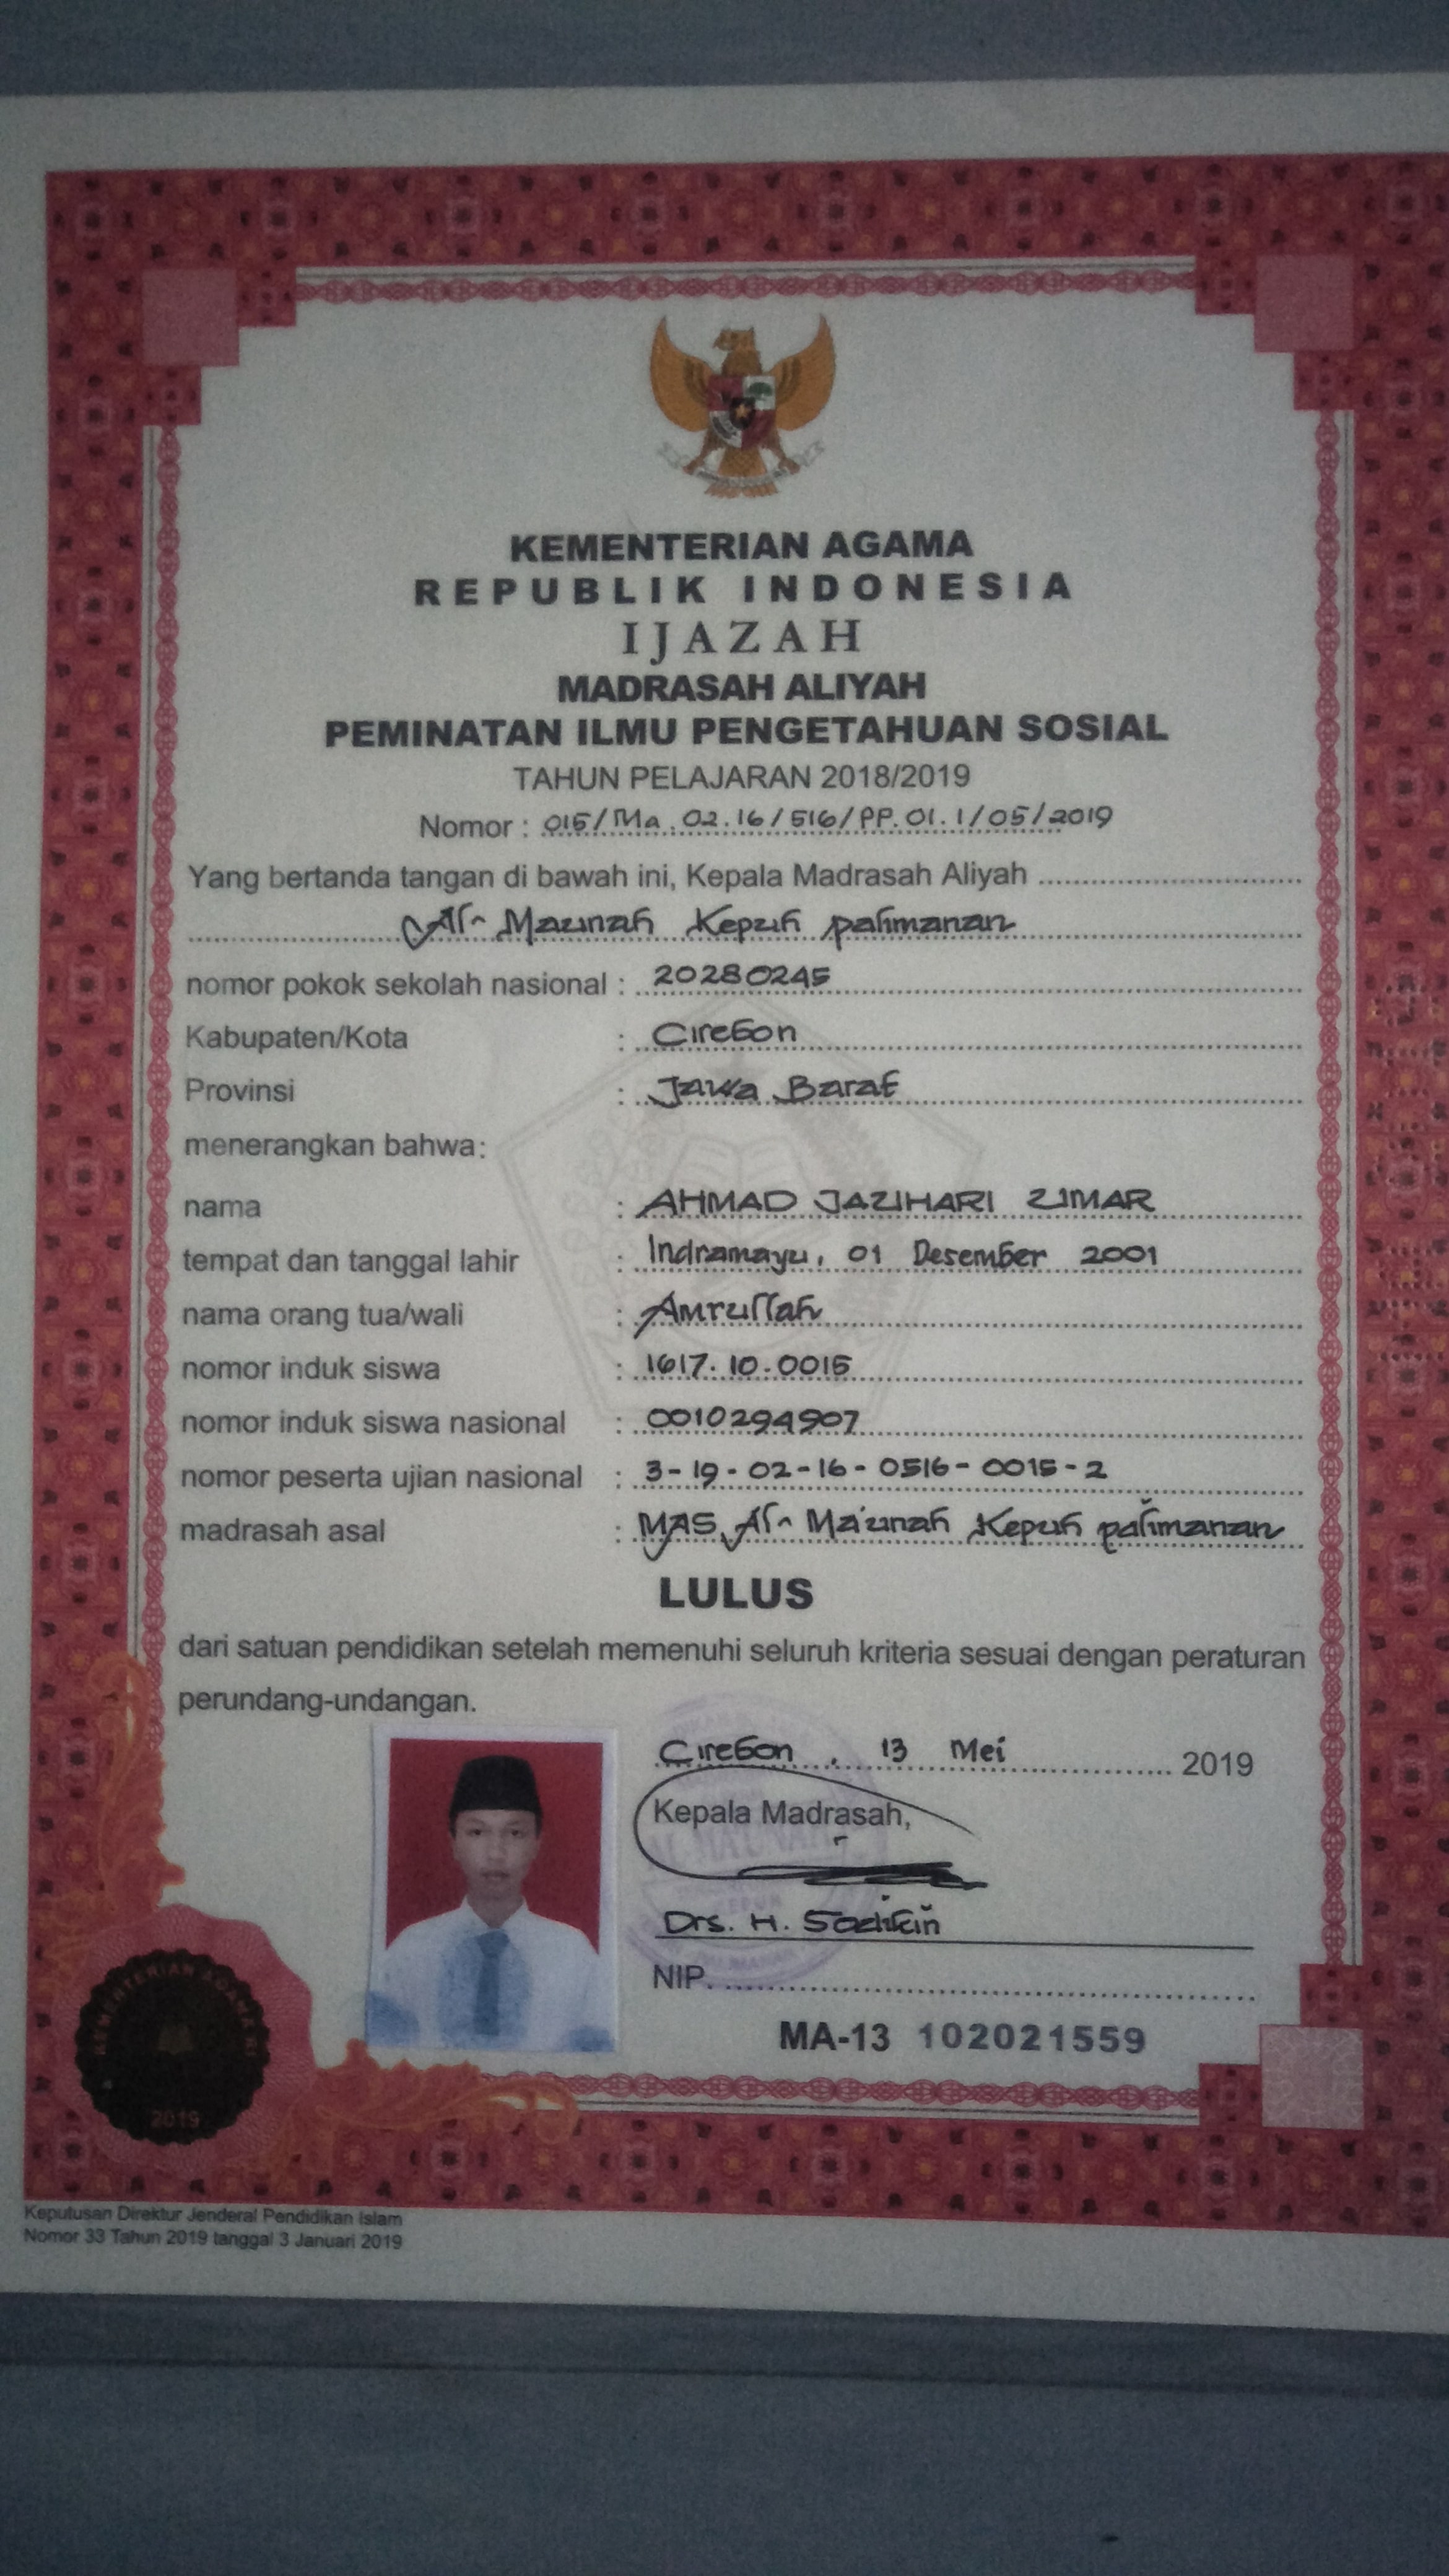 KEMENTERIAN AGAMA
REPUBLIK INDONESIA
IJAZAH
MADRASAH ALIYAH
PEMINATAN ILMU PENGETAHUAN SOSIAL
TAHUN PELAJARAN 2018/2019
Nomor : 015/Ma.02.16/516/PP.01.1/05/2019
Yang bertanda tangan di bawah ini, Kepala Madrasah Aliyah
Al-Maunah Kepuh palimanan
nomor pokok sekolah nasional : 20280245
Kabupaten/Kota : Cirebon
Provinsi : Jawa Barat
menerangkan bahwa:
nama : AHMAD JAZIHARI ZIMAR
tempat dan tanggal lahir : Indramayu, 01 Desember 2001
nama orang tua/wali : Amrullah
nomor induk siswa : 1617.10.0015
nomor induk siswa nasional : 0010294907
nomor peserta ujian nasional : 3-19-02-16-0516-0015-2
madrasah asal : MAS Al-Ma'unah Kepuh palimanan
LULUS
dari satuan pendidikan setelah memenuhi seluruh kriteria sesuai dengan peraturan
perundang-undangan.
Cirebon, 13 Mei 2019
Kepala Madrasah,
Drs. H.
NIP.
MA-13 102021559
KEMENTERIAN AGAMA RI
2019
Keputusan Direktur Jenderal Pendidikan Islam
Nomor 33 Tahun 2019 tanggal 3 Januari 2019